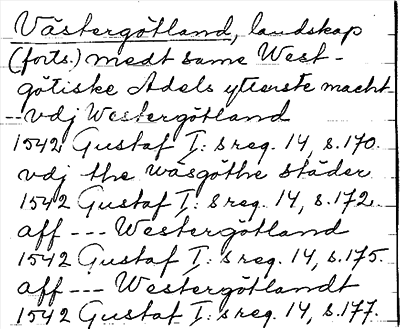 Västergötland, landskap
(forts.) medt same West-
götiske Adels ytterste macht
--vdj Westergötland
1542 Gustaf I:s reg. 14, s.170.
vdj the wäsgöthe städer
1542 Gustaf I:s reg. 14, s.172.
aff --- Westergötland
1542 Gustaf I:s reg. 14, s.175.
aff --- Westergötlandt
1542 Gustaf I:s reg. 14, s.177.